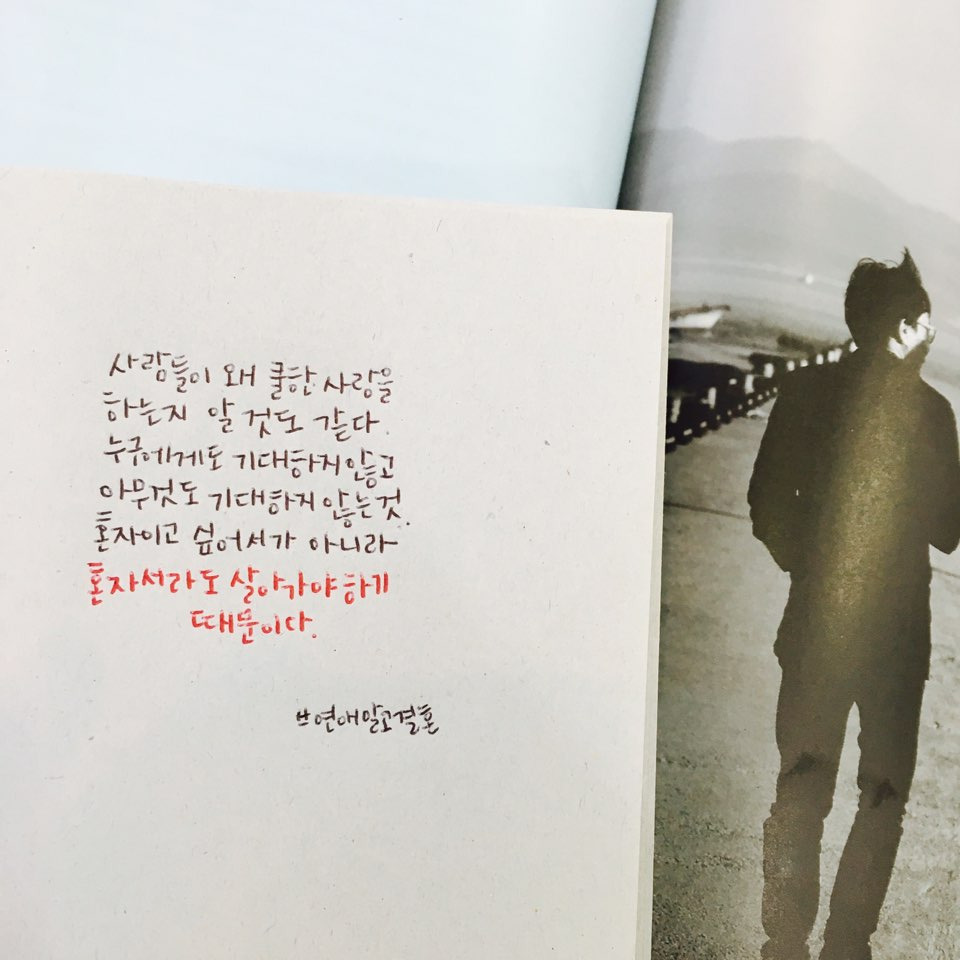 사람들이 왜 쿨한 사랑을
하는지 알 것도 같다.
누구에게도 기대하지 않고
아무것도 기대하지 않는 것.
혼자이고 싶어서가 아니라
혼자서라도 살아가야 하기
때문이다.
#연애말고결혼